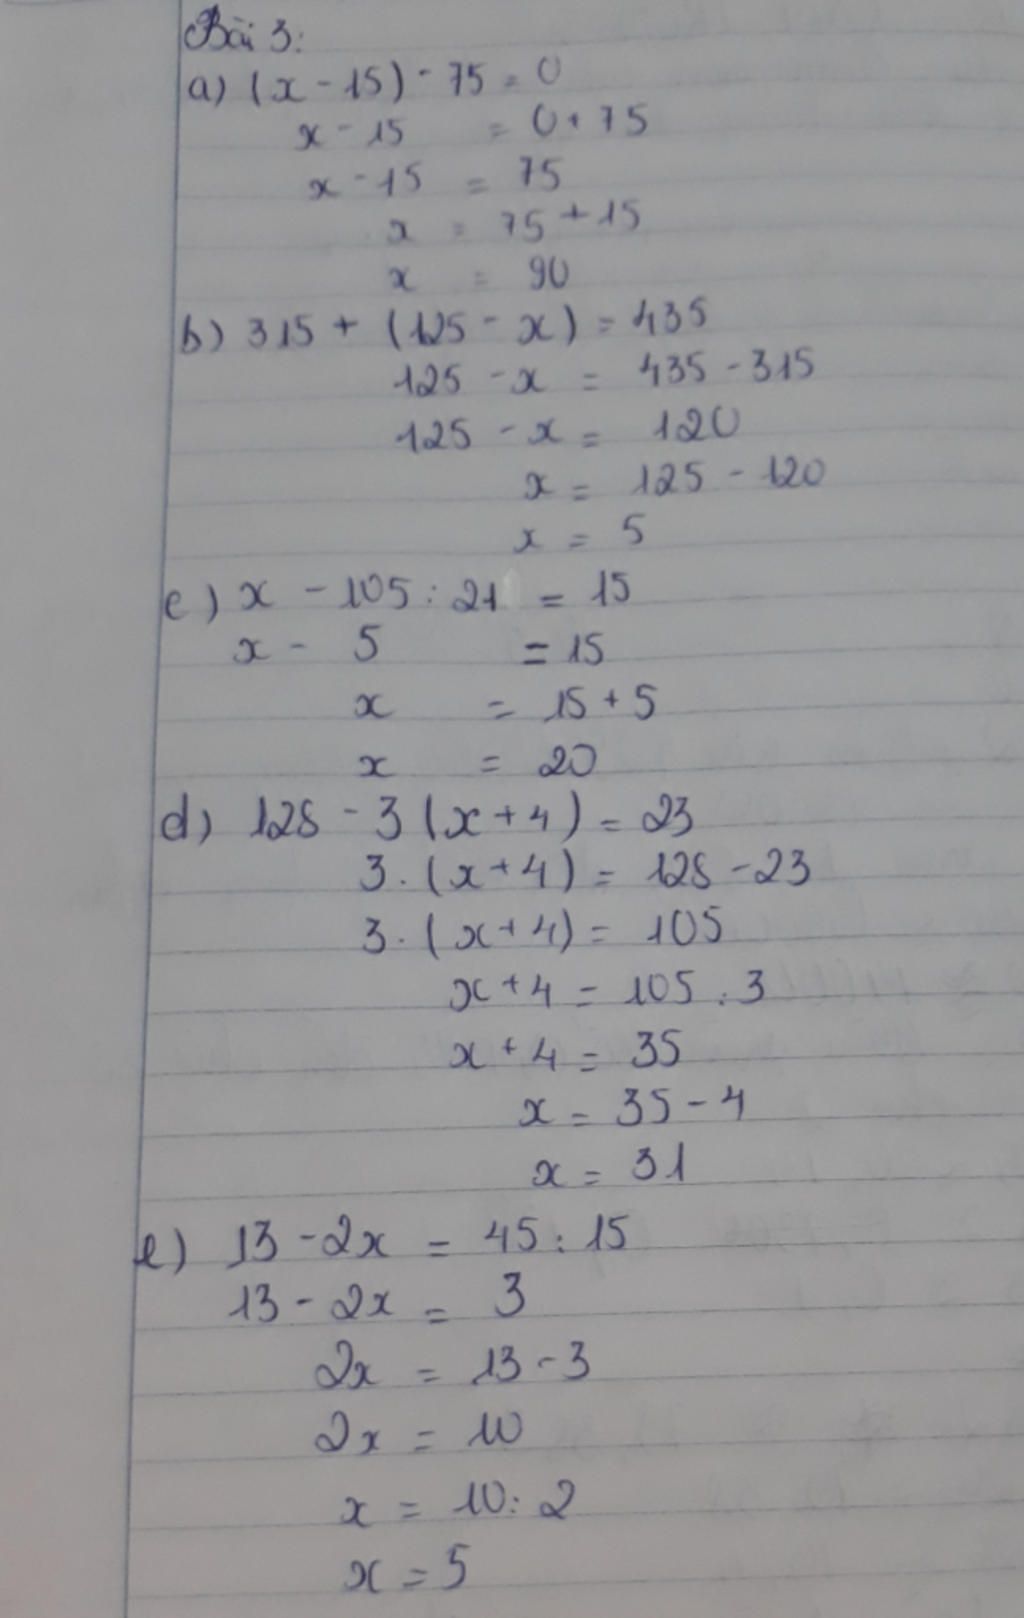 Bài 3:
a) (x - 15) - 75 = 0
x - 15 = 0 + 75
x - 15 = 75
x = 75 + 15
x = 90
b) 315 + (125 - x) = 435
125 - x = 435 - 315
125 - x = 120
x = 125 - 120
x = 5
c) x - 105 : 21 = 15
x - 5 = 15
x = 15 + 5
x = 20
d) 128 - 3 (x + 4) = 23
3. (x + 4) = 128 - 23
3. (x + 4) = 105
x + 4 = 105 : 3
x + 4 = 35
x = 35 - 4
x = 31
e) 13 - 2x = 45 : 15
13 - 2x = 3
2x = 13 - 3
2x = 10
x = 10 : 2
x = 5